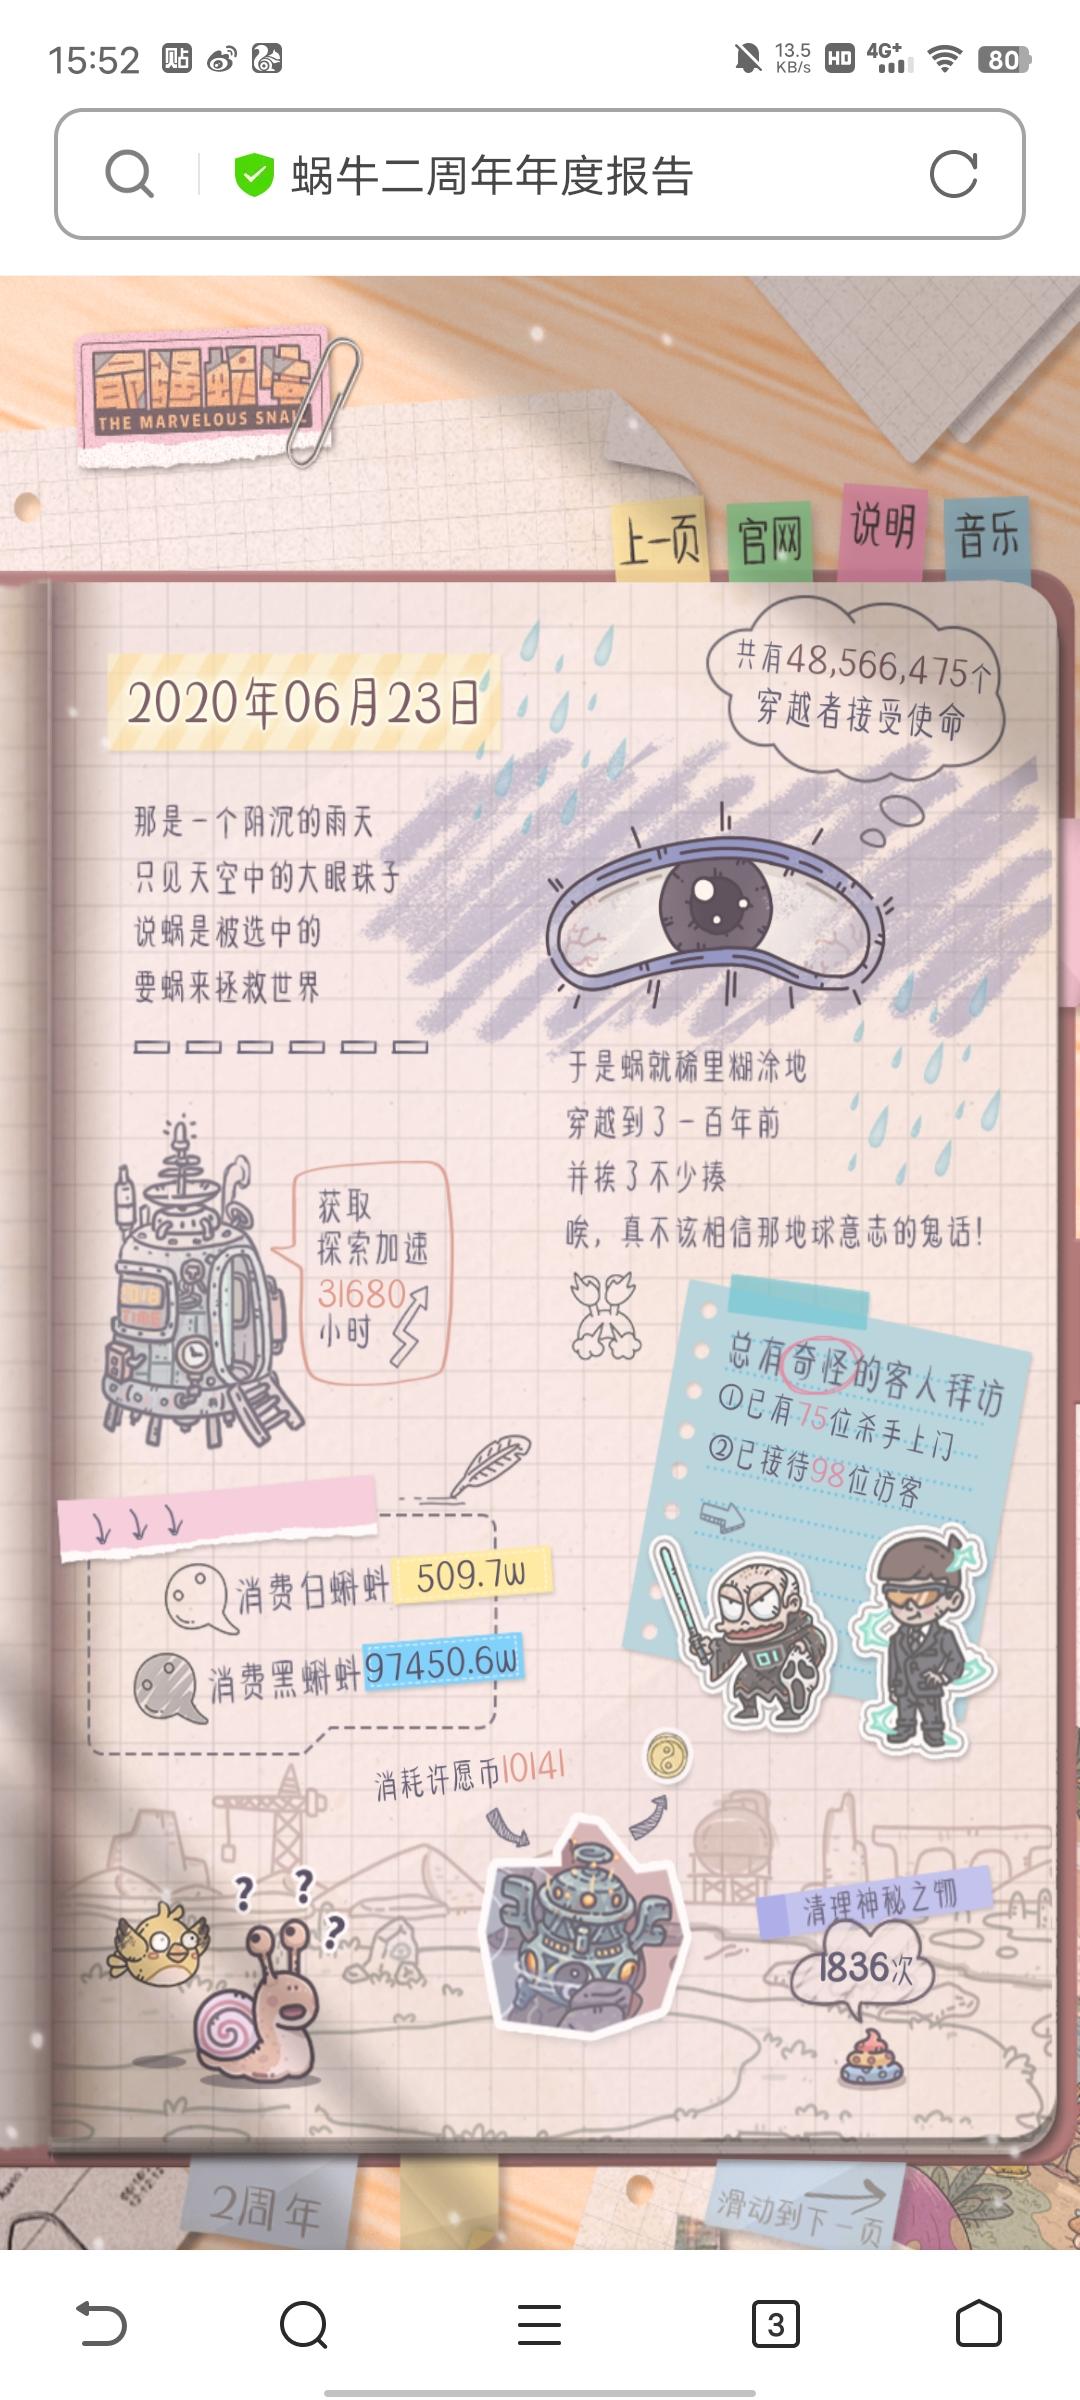 15:52
贴
13.5
KB/s
HD
4G+
80
蜗牛二周年年度报告
最强蜗牛
THE MARVELOUS SNAIL
上一页
官网
说明
音乐
2020年06月23日
共有48,566,475个
穿越者接受使命
那是一个阴沉的雨天
只见天空中的大眼珠子
说蜗是被选中的
要蜗来拯救世界
于是蜗就稀里糊涂地
穿越到了一百年前
并挨了不少揍
唉，真不该相信那地球意志的鬼话！
获取
探索加速
31680
小时
TIME
总有奇怪的客人拜访
①已有75位杀手上门
②已接待98位访客
消费白蝌蚪 509.7w
消费黑蝌蚪 97450.6w
消耗许愿币10141
? ? ?
清理神秘之物
1836次
2周年
滑动到下一页
3